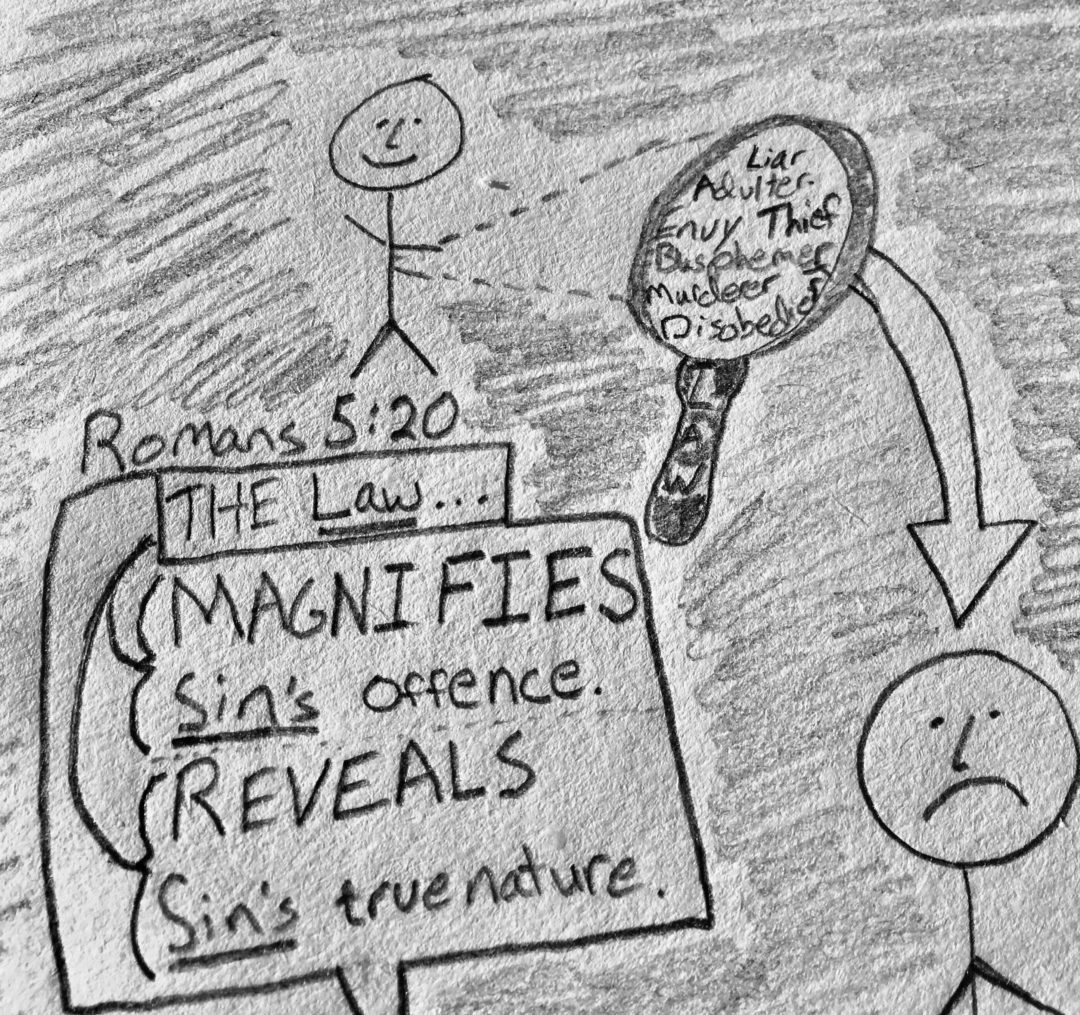 Liar
Adulter.
Envy Thief
Blasphemer
Murderer
Disobedient
LAW
Romans 5:20
THE Law...
MAGNIFIES
Sin's offence.
REVEALS
Sin's true nature.